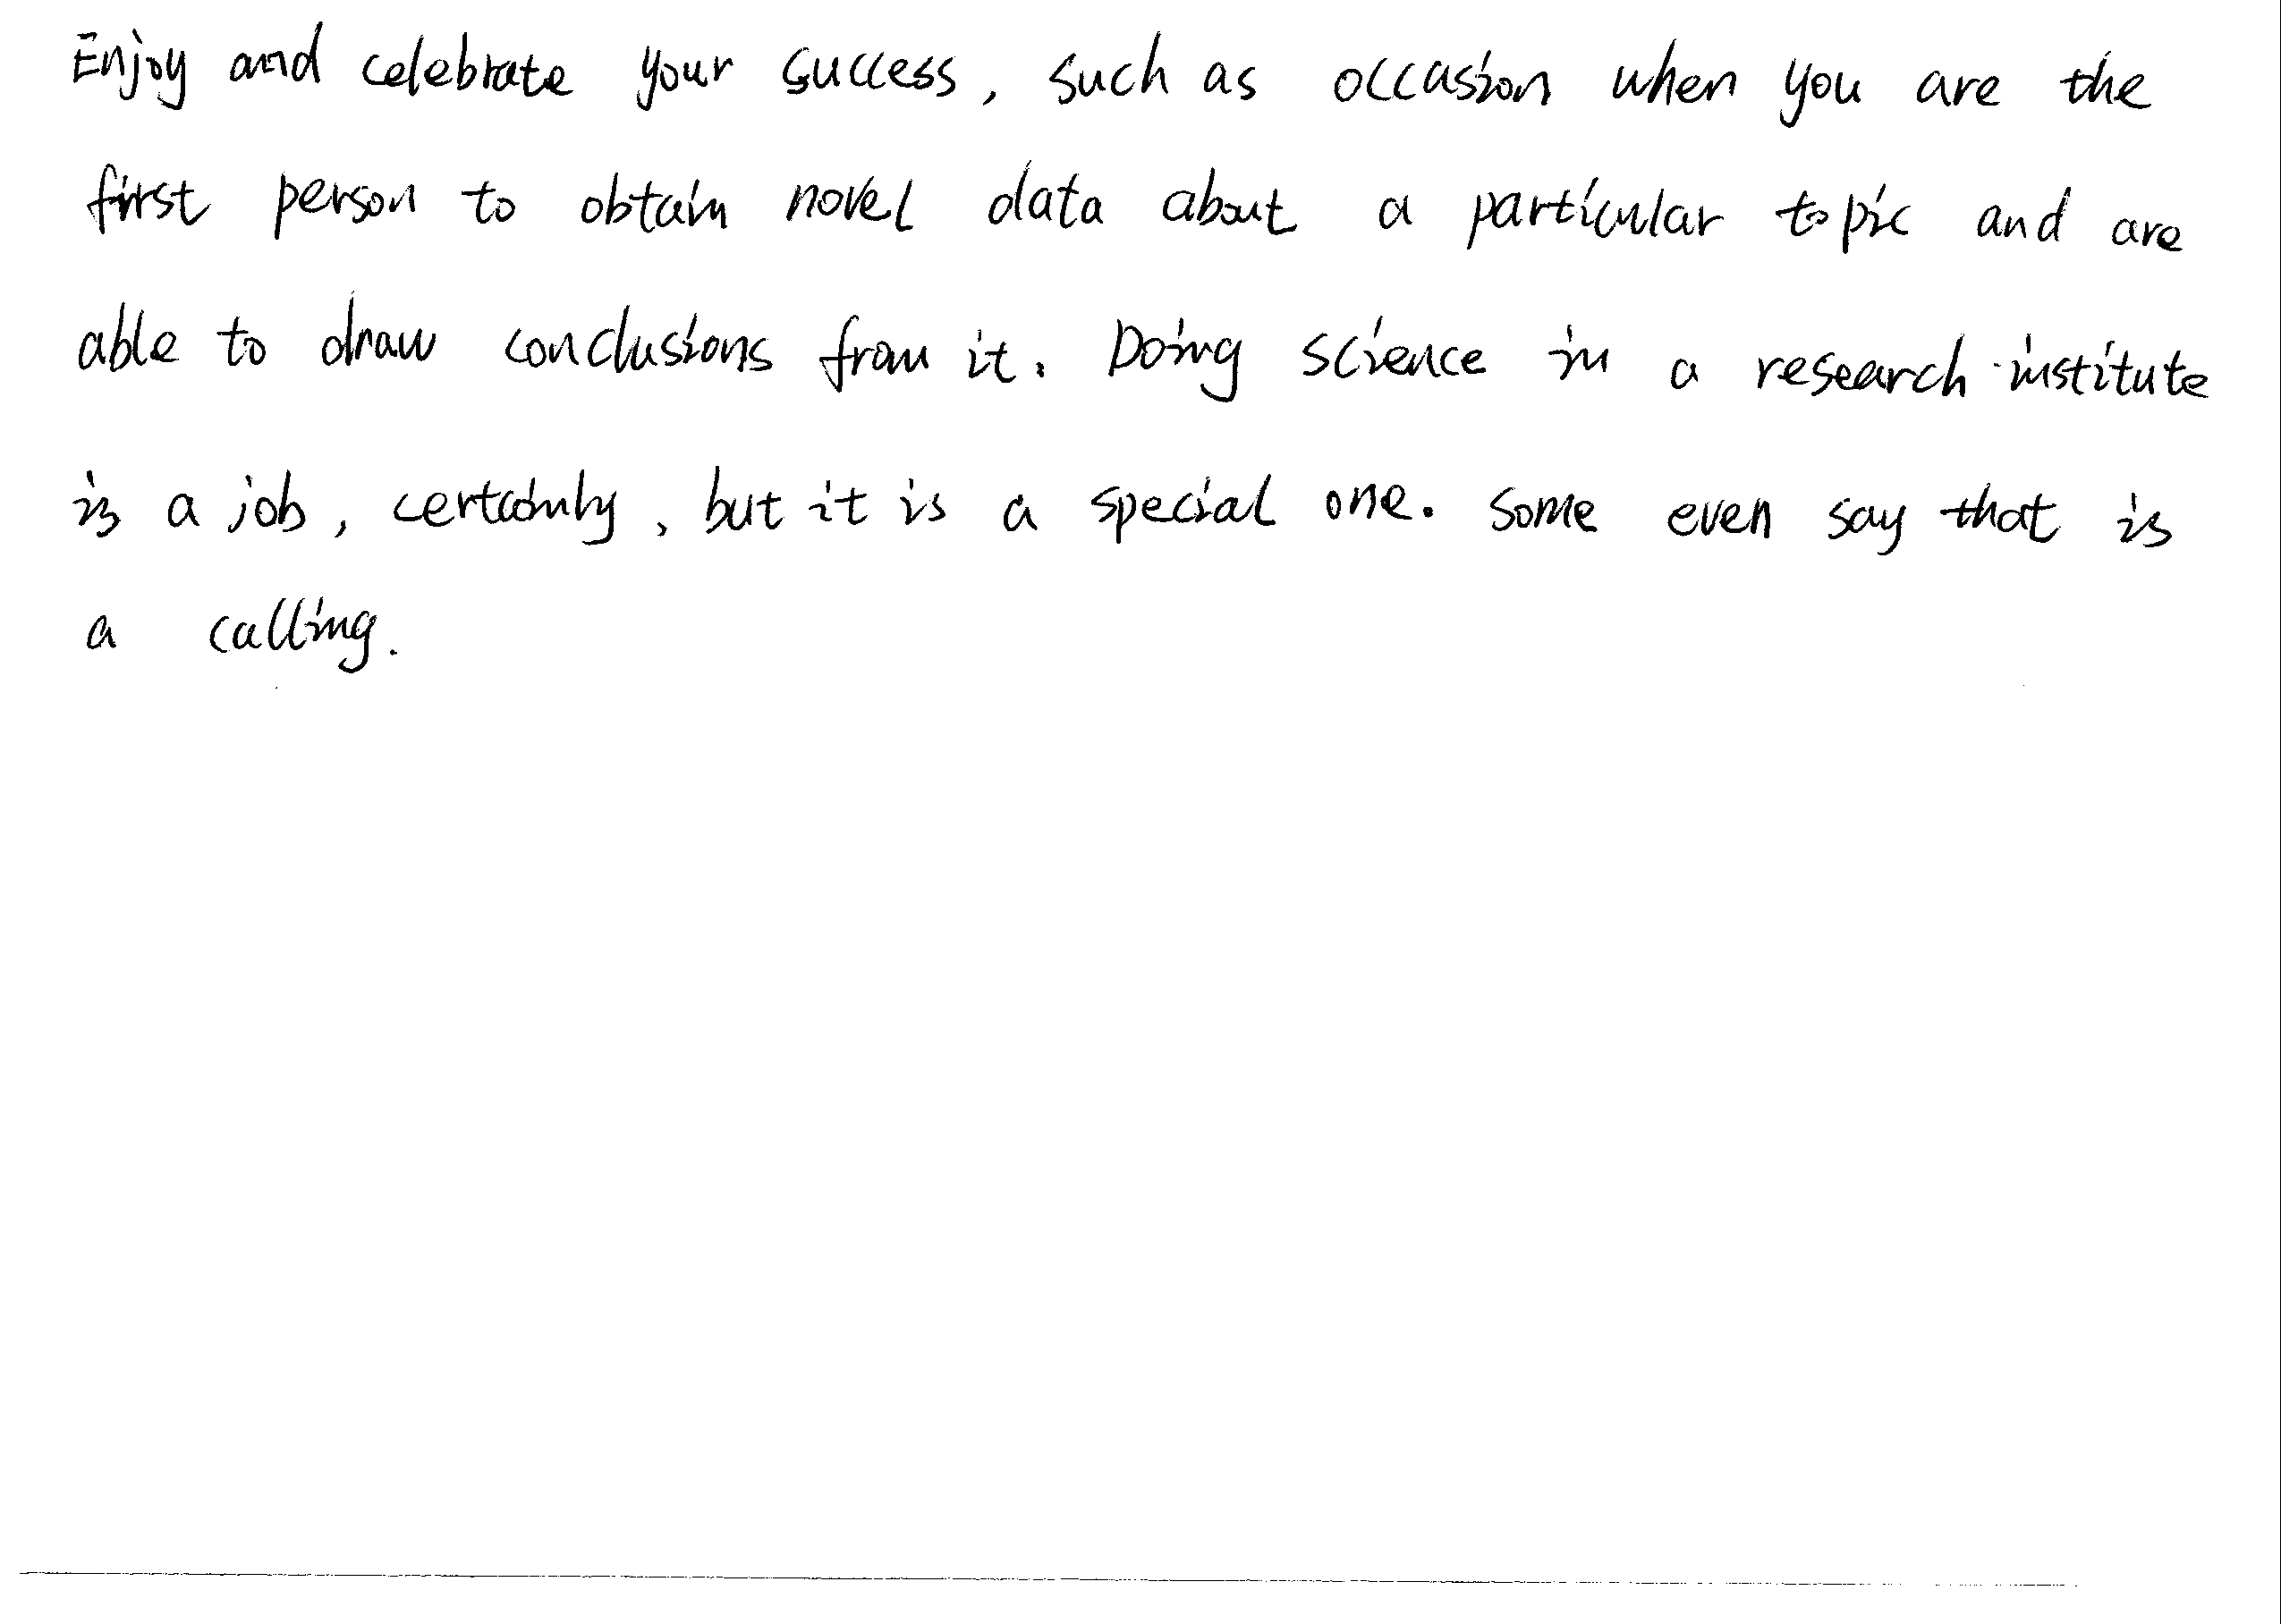 Enjoy and celebrate your success, such as occasion when you are the
first person to obtain novel data about a particular topic and are
able to draw conclusions from it. Doing science in a research institute
is a job, certainly, but it is a special one. Some even say that is
a calling.